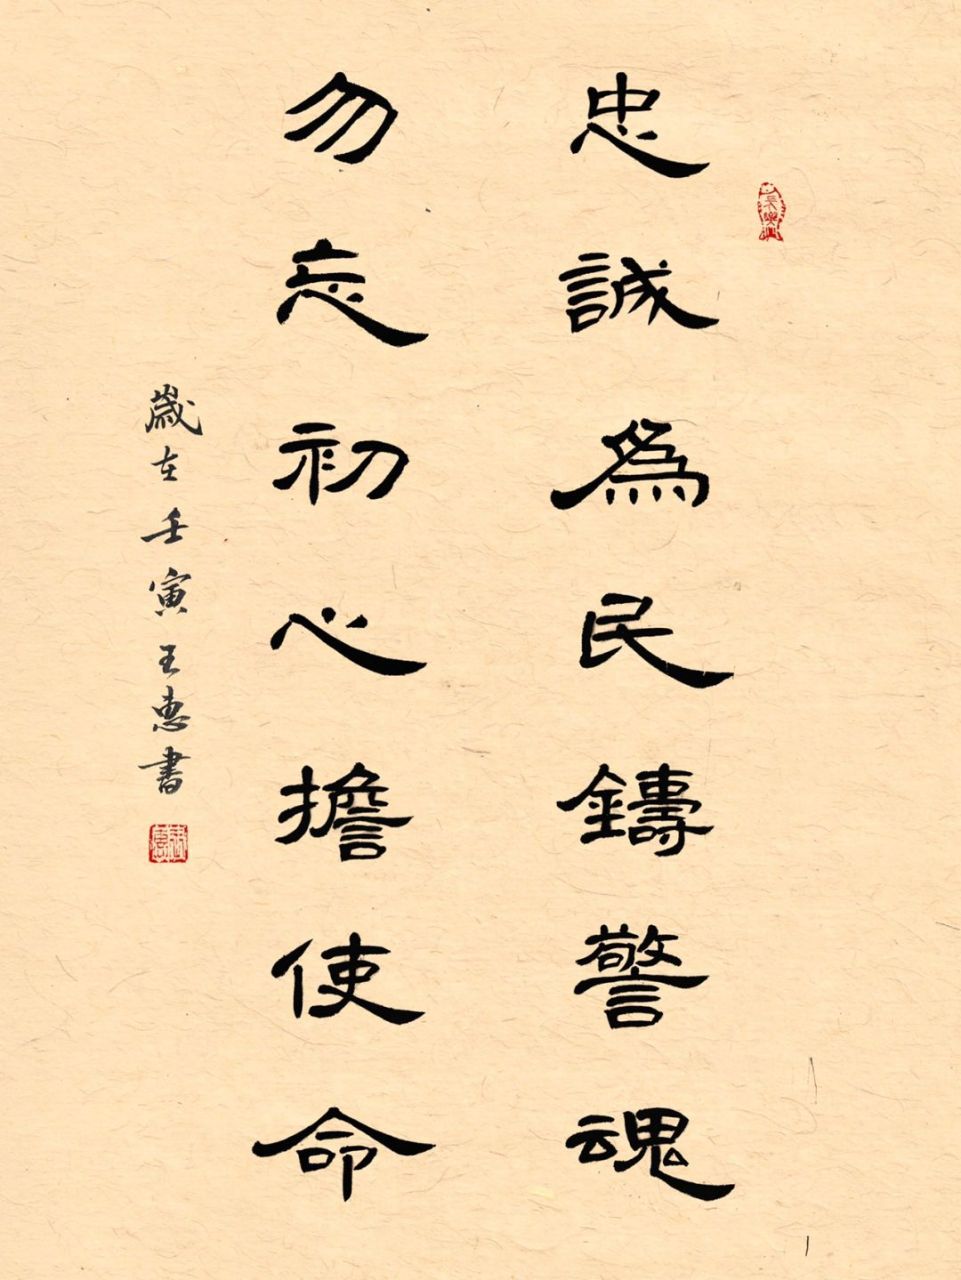 忠誠為民鑄警魂
勿忘初心擔使命
歲在壬寅王惠書